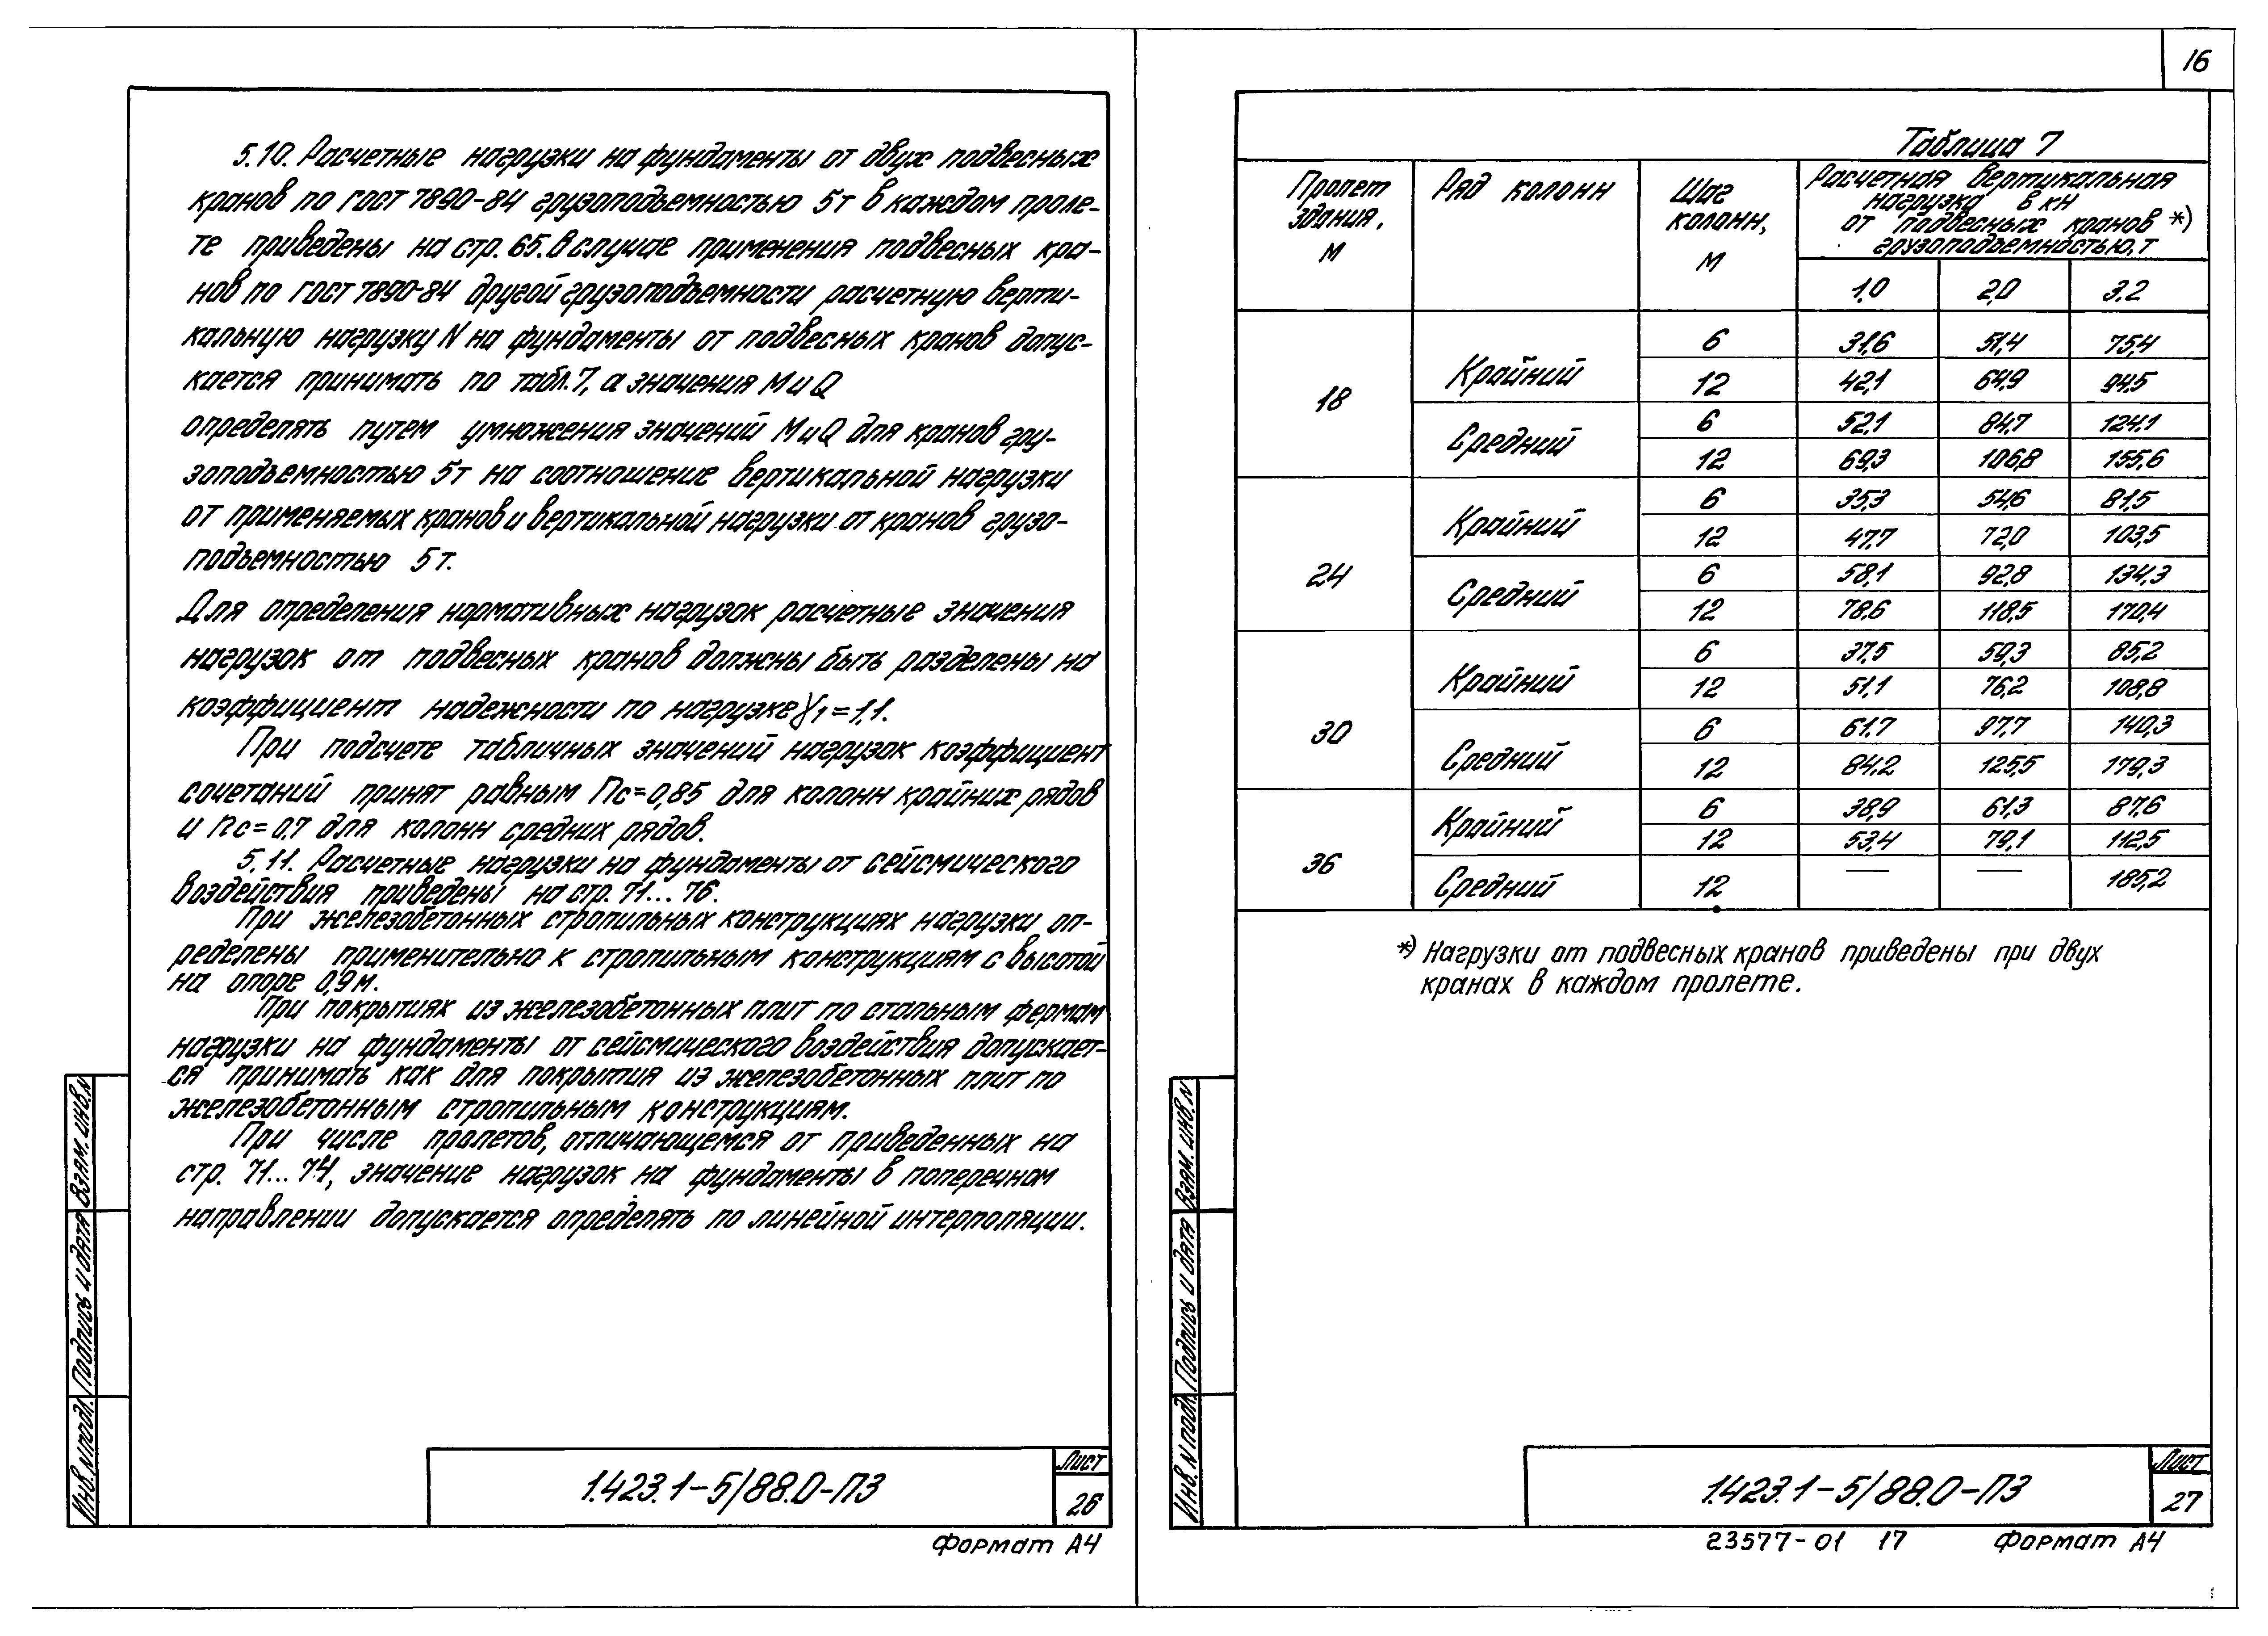 5.10. Расчетные нагрузки на фундаменты от двух подвесных
кранов по ГОСТ 7890-84 грузоподъемностью 5т в каждом проле-
те приведены на стр. 65. В случае применения подвесных кра-
нов по ГОСТ 7890-84 другой грузоподъемности расчетную верти-
кальную нагрузку N на фундаменты от подвесных кранов допус-
кается принимать по табл. 7, а значения M и Q
определять путем умножения значений M и Q для кранов гру-
зоподъемностью 5т на соотношение вертикальной нагрузки
от применяемых кранов и вертикальной нагрузки от кранов грузо-
подъемностью 5т.
Для определения нормативных нагрузок расчетные значения
нагрузок от подвесных кранов должны быть разделены на
коэффициент надежности по нагрузке γ₁=1,1.
При подсчете табличных значений нагрузок коэффициент
сочетаний принят равным nc=0,85 для колонн крайних рядов
и nc=0,7 для колонн средних рядов.
5.11. Расчетные нагрузки на фундаменты от сейсмического
воздействия приведены на стр. 71...76.
При железобетонных стропильных конструкциях нагрузки оп-
ределены применительно к стропильным конструкциям с высотой
на опоре 0,9м.
При покрытиях из железобетонных плит по стальным фермам
нагрузки на фундаменты от сейсмического воздействия допускает-
ся принимать как для покрытия из железобетонных плит по
железобетонным стропильным конструкциям.
При числе пролетов, отличающемся от приведенных на
стр. 71...74, значение нагрузок на фундаменты в поперечном
направлении допускается определять по линейной интерполяции.
Инв. N подл. Подпись и дата Взам. инв. N
1.423.1-5/88.0-ПЗ
Лист
26
Формат А4
16
Таблица 7
Пролет здания, м | Ряд колонн | Шаг колонн, м | Расчетная вертикальная нагрузка в кн от подвесных кранов *) грузоподъемностью, т
1,0 | 2,0 | 3,2
18 | Крайний | 6 | 31,6 | 51,4 | 75,4
12 | 42,1 | 64,9 | 94,5
Средний | 6 | 52,1 | 84,7 | 124,1
12 | 69,3 | 106,8 | 155,6
24 | Крайний | 6 | 35,3 | 54,6 | 81,5
12 | 47,7 | 72,0 | 103,5
Средний | 6 | 58,1 | 92,8 | 134,3
12 | 78,6 | 118,5 | 170,4
30 | Крайний | 6 | 37,5 | 59,3 | 85,2
12 | 51,1 | 76,2 | 108,8
Средний | 6 | 61,7 | 97,7 | 140,3
12 | 84,2 | 125,5 | 179,3
36 | Крайний | 6 | 38,9 | 61,3 | 87,6
12 | 53,4 | 79,1 | 112,5
Средний | 12 | — | — | 185,2
*) Нагрузки от подвесных кранов приведены при двух
кранах в каждом пролете.
Инв. N подл. Подпись и дата Взам. инв. N
1.423.1-5/88.0-ПЗ
Лист
27
23577-01 17 Формат А4